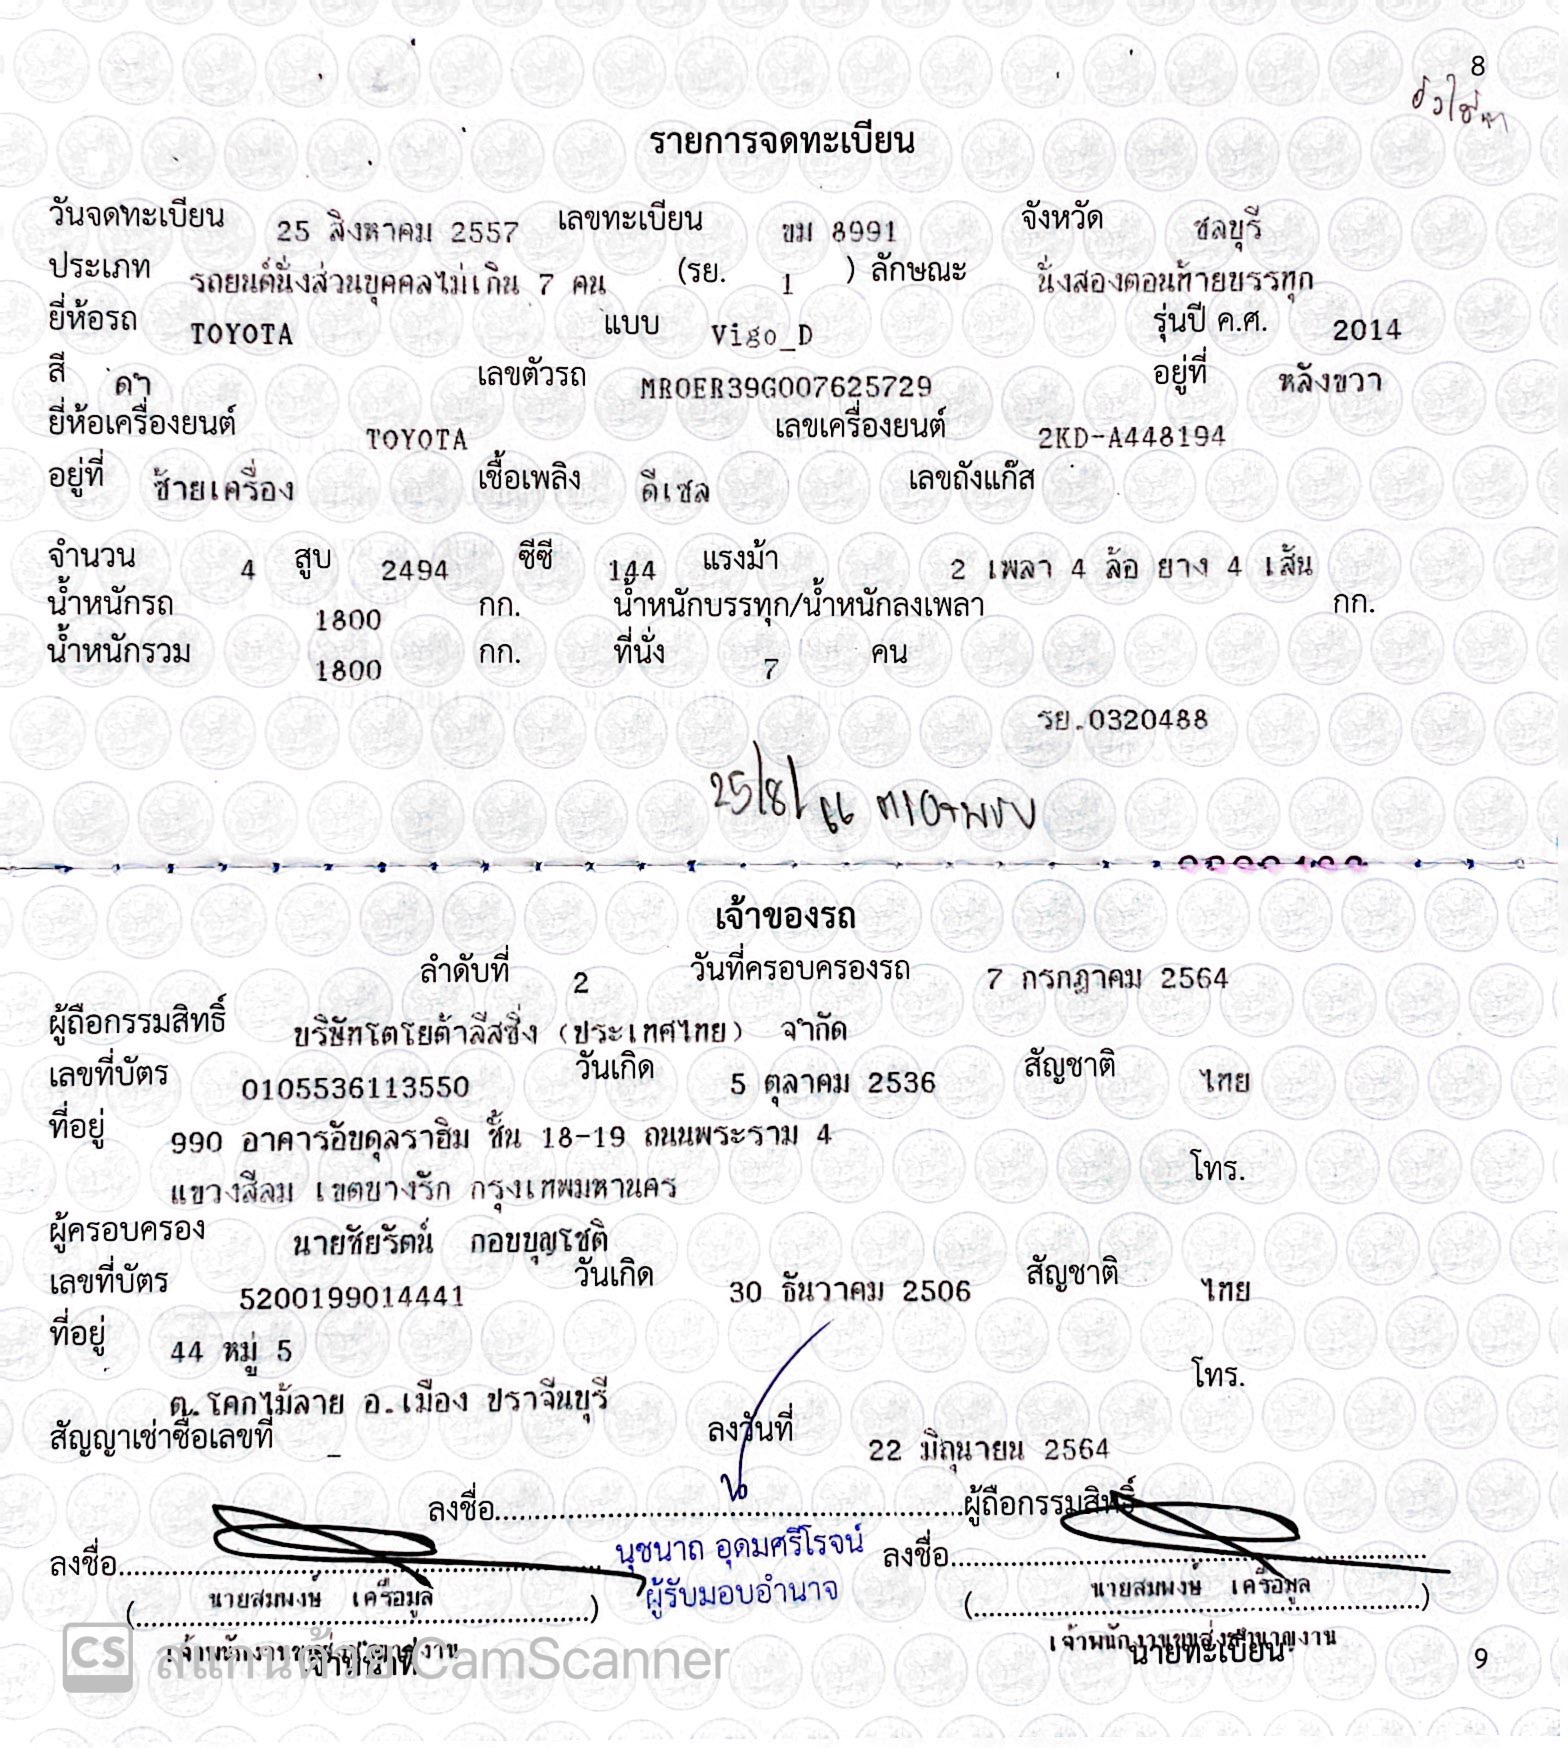 8
รายการจดทะเบียน
วันจดทะเบียน 25 สิงหาคม 2557 เลขทะเบียน ขม 8991 จังหวัด ชลบุรี
ประเภท รถยนต์นั่งส่วนบุคคลไม่เกิน 7 คน (รย. 1 ) ลักษณะ นั่งสองตอนท้ายบรรทุก
ยี่ห้อรถ TOYOTA แบบ Vigo_D รุ่นปี ค.ศ. 2014
สี ดำ เลขตัวรถ MROER39G007625729 อยู่ที่ หลังขวา
ยี่ห้อเครื่องยนต์ TOYOTA เลขเครื่องยนต์ 2KD-A448194
อยู่ที่ ซ้ายเครื่อง เชื้อเพลิง ดีเซล เลขถังแก๊ส
จำนวน 4 สูบ 2494 ซีซี 144 แรงม้า 2 เพลา 4 ล้อ ยาง 4 เส้น
น้ำหนักรถ 1800 กก. น้ำหนักบรรทุก/น้ำหนักลงเพลา กก.
น้ำหนักรวม 1800 กก. ที่นั่ง 7 คน
รย.0320488
25/8/
เจ้าของรถ
ลำดับที่ 2 วันที่ครอบครองรถ 7 กรกฎาคม 2564
ผู้ถือกรรมสิทธิ์ บริษัทโตโยต้าลีสซิ่ง (ประเทศไทย) จำกัด
เลขที่บัตร 0105536113550 วันเกิด 5 ตุลาคม 2536 สัญชาติ ไทย
ที่อยู่ 990 อาคารอับดุลราฮิม ชั้น 18-19 ถนนพระราม 4
แขวงสีลม เขตบางรัก กรุงเทพมหานคร โทร.
ผู้ครอบครอง นายชัยรัตน์ กอบบุญโชติ
เลขที่บัตร 5200199014441 วันเกิด 30 ธันวาคม 2506 สัญชาติ ไทย
ที่อยู่ 44 หมู่ 5
ต.โคกไม้ลาย อ.เมือง ปราจีนบุรี โทร.
สัญญาเช่าซื้อเลขที่ - ลงวันที่ 22 มิถุนายน 2564
ลงชื่อ ผู้ถือกรรมสิทธิ์
ลงชื่อ นุชนาถ อุดมศรีโรจน์ ลงชื่อ
(นายสมพงษ์ เครือมูล) ผู้รับมอบอำนาจ (นายสมพงษ์ เครือมูล)
เจ้าพนักงานขนส่งชำนาญงาน เจ้าพนักงานขนส่งชำนาญงาน
เจ้าหน้าที่ นายทะเบียน
CS สแกนด้วย CamScanner
9